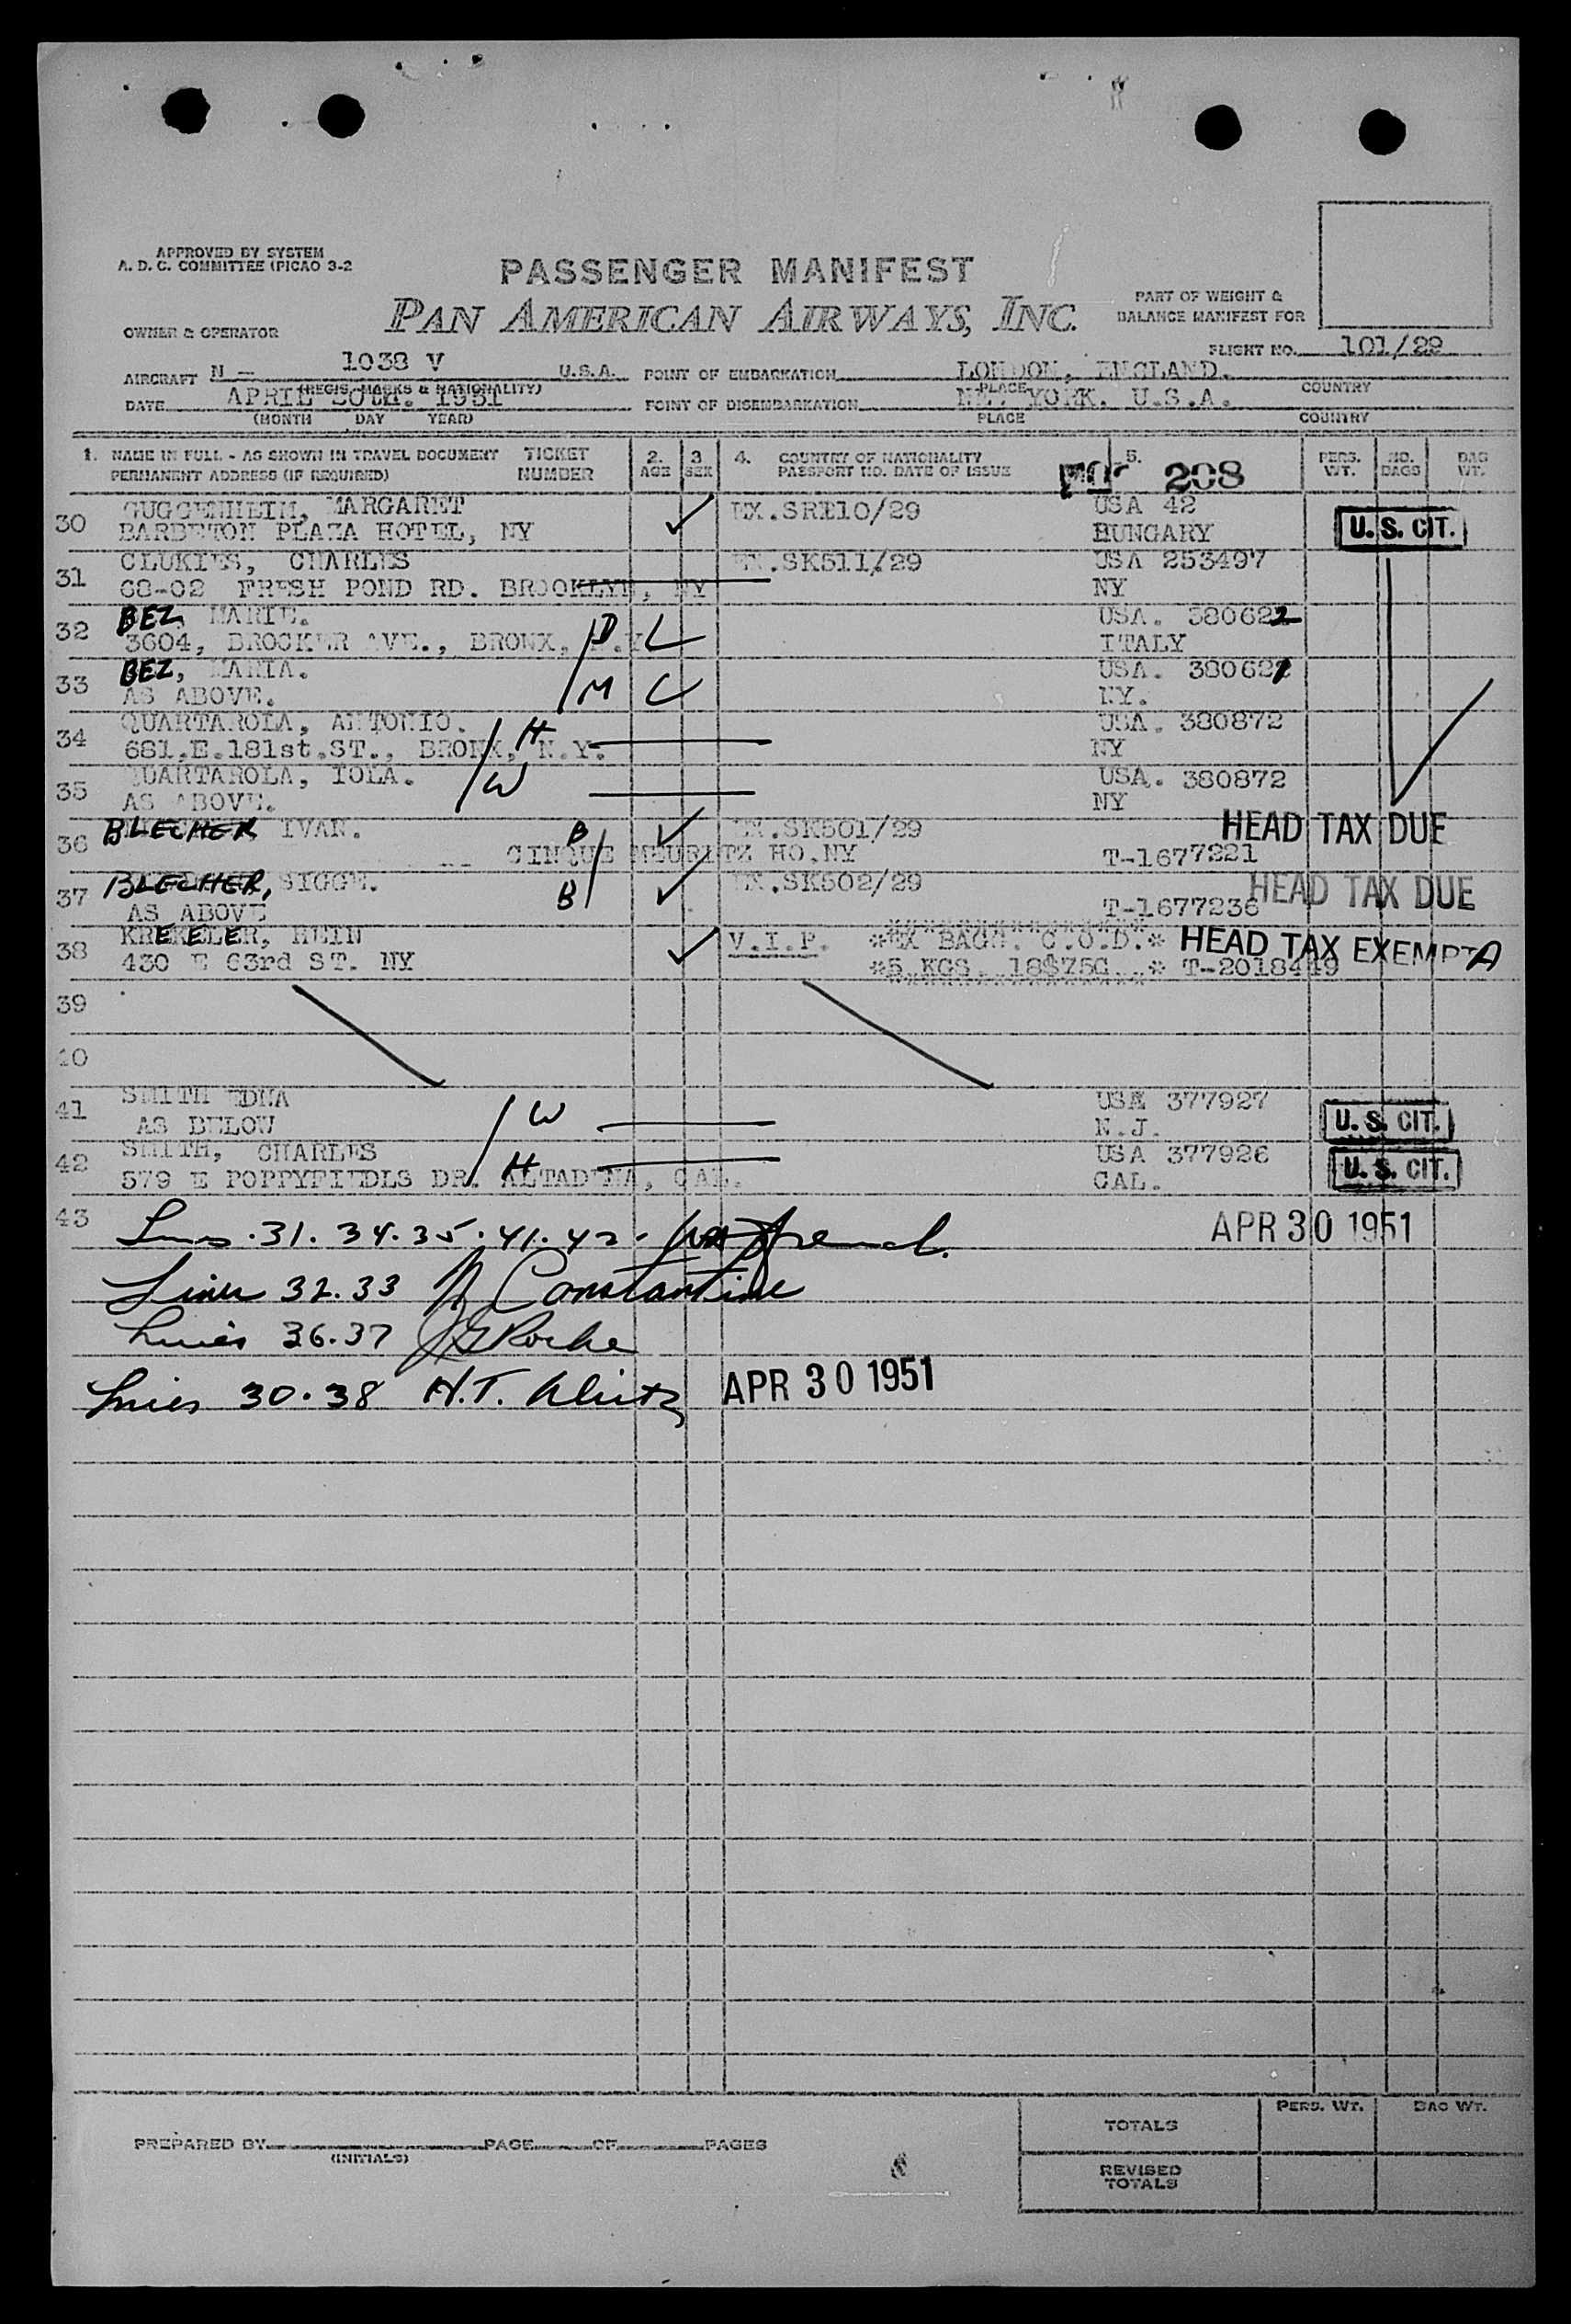 APPROVED BY SYSTEM
A. D. C. COMMITTEE (PICAO 3-2
PASSENGER MANIFEST
PAN AMERICAN AIRWAYS, INC.
PART OF WEIGHT &
BALANCE MANIFEST FOR
OWNER & OPERATOR
FLIGHT NO. 101/29
AIRCRAFT N - 1038 V U.S.A. POINT OF EMBARKATION LONDON, ENGLAND.
(REGIS. MARKS & NATIONALITY) PLACE COUNTRY
DATE APRIL 30th. 1951 POINT OF DISEMBARKATION NEW YORK. U.S.A.
(MONTH DAY YEAR) PLACE COUNTRY
1. NAME IN FULL - AS SHOWN IN TRAVEL DOCUMENT TICKET 2. 3 4. COUNTRY OF NATIONALITY 5. PERS. NO. BAG
PERMANENT ADDRESS (IF REQUIRED) NUMBER AGE SEX PASSPORT NO. DATE OF ISSUE 208 WT. BAGS WT.
30 GUGGENHEIM, MARGARET EX.SR110/29 USA 42
BARBETON PLAZA HOTEL, NY HUNGARY U. S. CIT.
31 CLUKIES, CHARLES .SK511/29 USA 253497
68-02 FRESH POND RD. BROOKLYN, NY NY
32 BEZ, MARIE. USA. 380622
3604, BROCKER AVE., BRONX, N.Y D ITALY
33 BEZ, MARIA. USA. 380621
AS ABOVE. M NY.
34 QUARTAROLA, ANTONIO. H USA. 380872
681,E.181st.ST., BRONX, N.Y. NY
35 QUARTAROLA, IOLA. W USA. 380872
AS ABOVE. NY
36 BLECHER, IVAN. B .SK501/29 HEAD TAX DUE
CINQUE MEURITZ HO.NY T-1677221
37 BLECHER, SIGGE. B .SK502/29 HEAD TAX DUE
AS ABOVE T-1677236
38 KREKELER, HEIN V.I.P. *EX BAGG. C.O.D.* HEAD TAX EXEMPT A
430 E 63rd ST. NY *5 KGS. 18$75C * T-2018449
39
40
41 SMITH EDNA W USA 377927
AS BELOW N.J. U. S. CIT.
42 SMITH, CHARLES H USA 377926
579 E POPPYFIEDLS DR. ALTADENA, CAL. CAL. U. S. CIT.
43 Lines .31. 34. 35. 41. 42. APR 30 1951
Lines 32.33 Constantine
Lines 36.37 Roche
Lines 30.38 H.T. APR 30 1951
PREPARED BY PAGE OF PAGES
(INITIALS)
PERS. WT. BAG WT.
TOTALS
REVISED
TOTALS